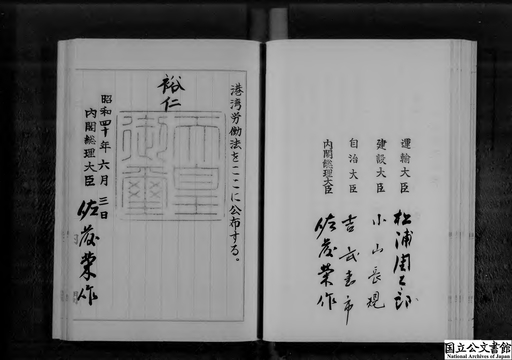 運輸大臣 松浦周太郎
建設大臣 小山長規
自治大臣 吉武恵市
内閣総理大臣 佐藤榮作
港湾労働法をここに公布する。
裕仁
天皇御璽
昭和四十年六月三日
内閣総理大臣 佐藤榮作
国立公文書館
National Archives of Japan